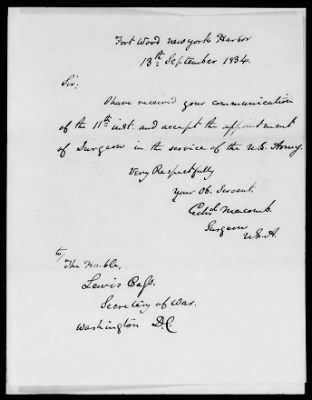 Fort Wood New york Harbor
13th September 1834.
Sir;
I have received your communication
of the 11th inst. and accept the appointment
of Surgeon in the service of the U.S. Army.
Very Respectfully
Your Ob. Servant.
Macomb.
Surgeon
U.S.A.
to
The Honble,
Lewis Cass.
Secretary of War.
Washington D.C